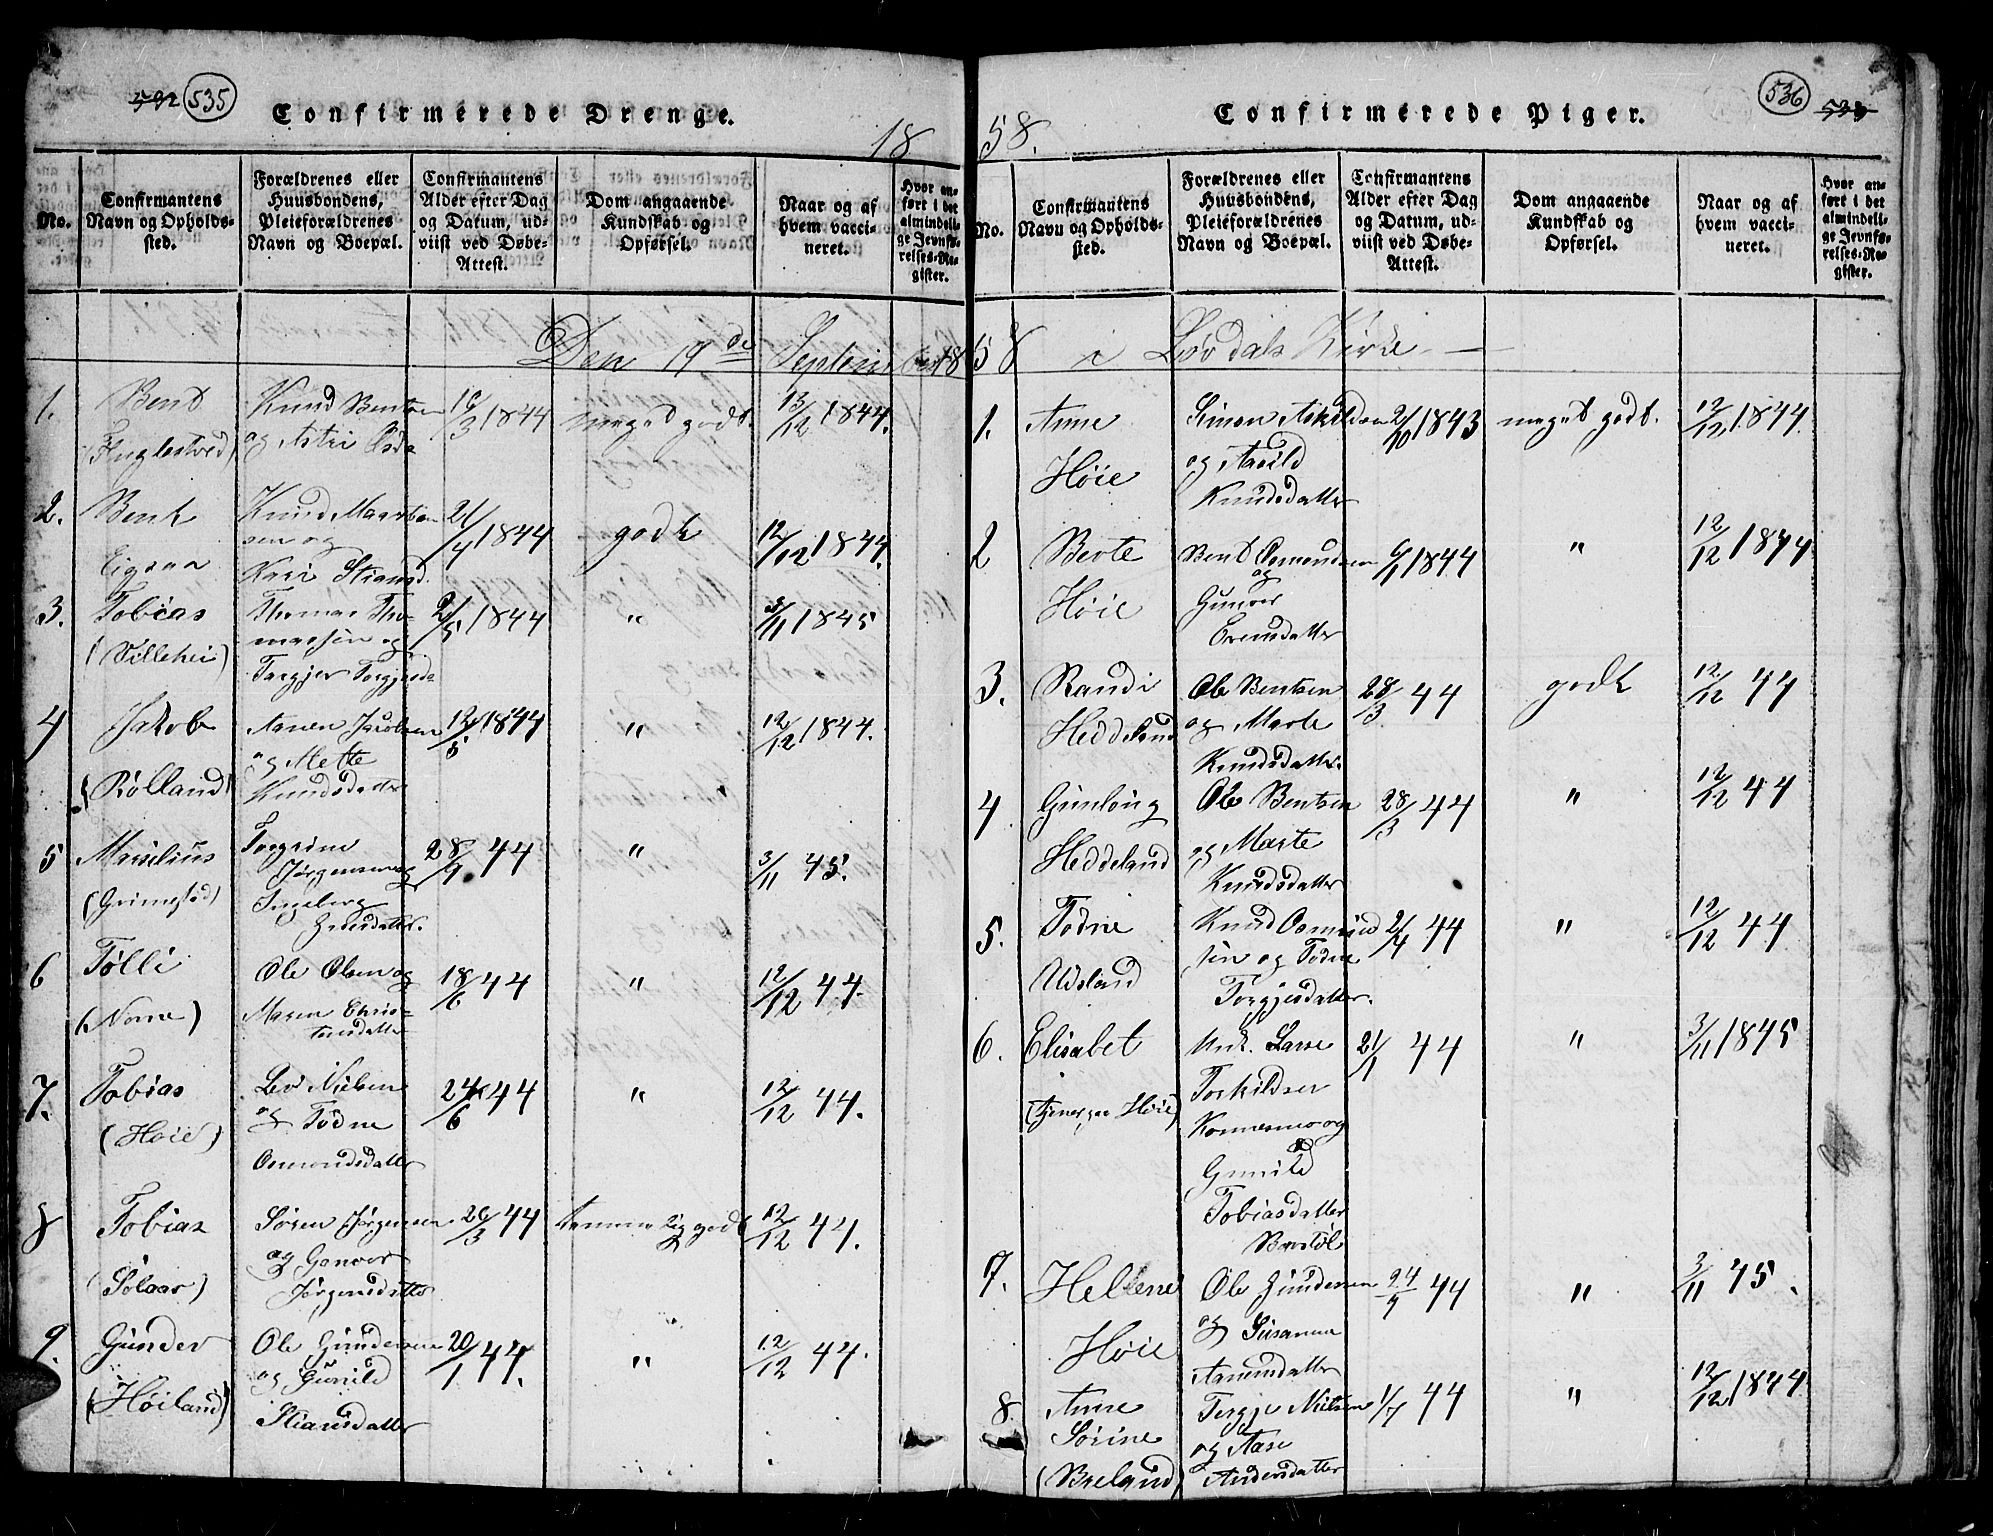 592 535
Confirmerede Drenge.
18
No.
Confirmantens Navn og Opholdssted.
Forældrenes eller Huusbondens, Pleieforældrenes Navn og Boepæl.
Confirmantens Alder efter Dag og Datum, udviist ved Døbe-Attest.
Dom angaaende Kundskab og Opførsel.
Naar og af hvem vaccineret.
Hvor anført i det almindelige Jevnførelses-Register.
Den 19de September 18
1. Bend Knud Bentsen 18/3 1844 meget godt. 13/12 1844.
(Fuglestved) og Astri Osd.
2. Bent Knud 21/4 1844 godt 12/12 1844.
Eigeaa sen og
Kari Stiansd.
3. Tobias Thomas Tho- 2/5 1844 " 3/11 1845
(Lillehei) massen og
Torgjer Torgjusd.
4 Jakob Aanen Jacobsen 12/5 1844 " 12/12 1844.
(Rølland) og Mette
Knudsdatter
5 Marselius Torgrim 28/9 44 " 3/11 45.
(Grimestad) Jørgensen og
Ingeborg
6 Tølli Ole Olsen og 18/6 44 " 12/12 44.
(Nome) Maren Chris-
tensdatter
7. Tobias Levi Nielsen 24/6 44 " 12/12 44.
(Høie) og Todne
Osmondsdatter
8 Tobias Søren Jørgensen 26/3 44 temmelig godt 12/12 44.
(Solaar) og Gonvor
Jørgensdatter
9. Gunder Ole Gundersen 20/1 44. " 12/12 44.
(Høiland) og Gunild
Stiansdatter
536 593
Confirmerede Piger.
58.
No.
Confirmantens Navn og Opholdssted.
Forældrenes eller Huusbondens, Pleieforældrenes Navn og Boepæl.
Confirmantens Alder efter Dag og Datum, udviist ved Døbe-Attest.
Dom angaaende Kundskab og Opførsel.
Naar og af hvem vaccineret.
Hvor anført i det almindelige Jevnførelses-Register.
58 i Løvdals Kirke
1. Anne Simon Askildsen 2/10 1843 meget godt. 12/12 1844.
Høie og Aasild
Knudsdatter
2 Berte Bent Osmondsen 6/1 1844 " 12/12 1844
Høie og Gunvor
Evensdatter
3. Randi Ole Bentsen 28/3 44 godt 12/12 44
Heddeland og Marte
Knudsdatter.
4 Gunlaug Ole Bentsen 28/3 44 " 12/12 44
Heddeland og Marte
Knudsdatter
5. Todne Knud Osmund 2/4 44 " 12/12 44
Udsland sen og Todne
Torgjesdatter.
6. Elisabet Unk. Lasse 21/1 44 " 3/11 1845
(tjener paa Høie) Torkildsen
og
Gunild
Tobiasdatter
7. Hellene Ole Gundersen 24/9 44 " 3/11 45.
Høie og Susanne
Aanensdatter
8. Anne Tergje Nielsen 1/7 44 " 12/12 1844
Sørine og Aase
(Breland) Andersdatter